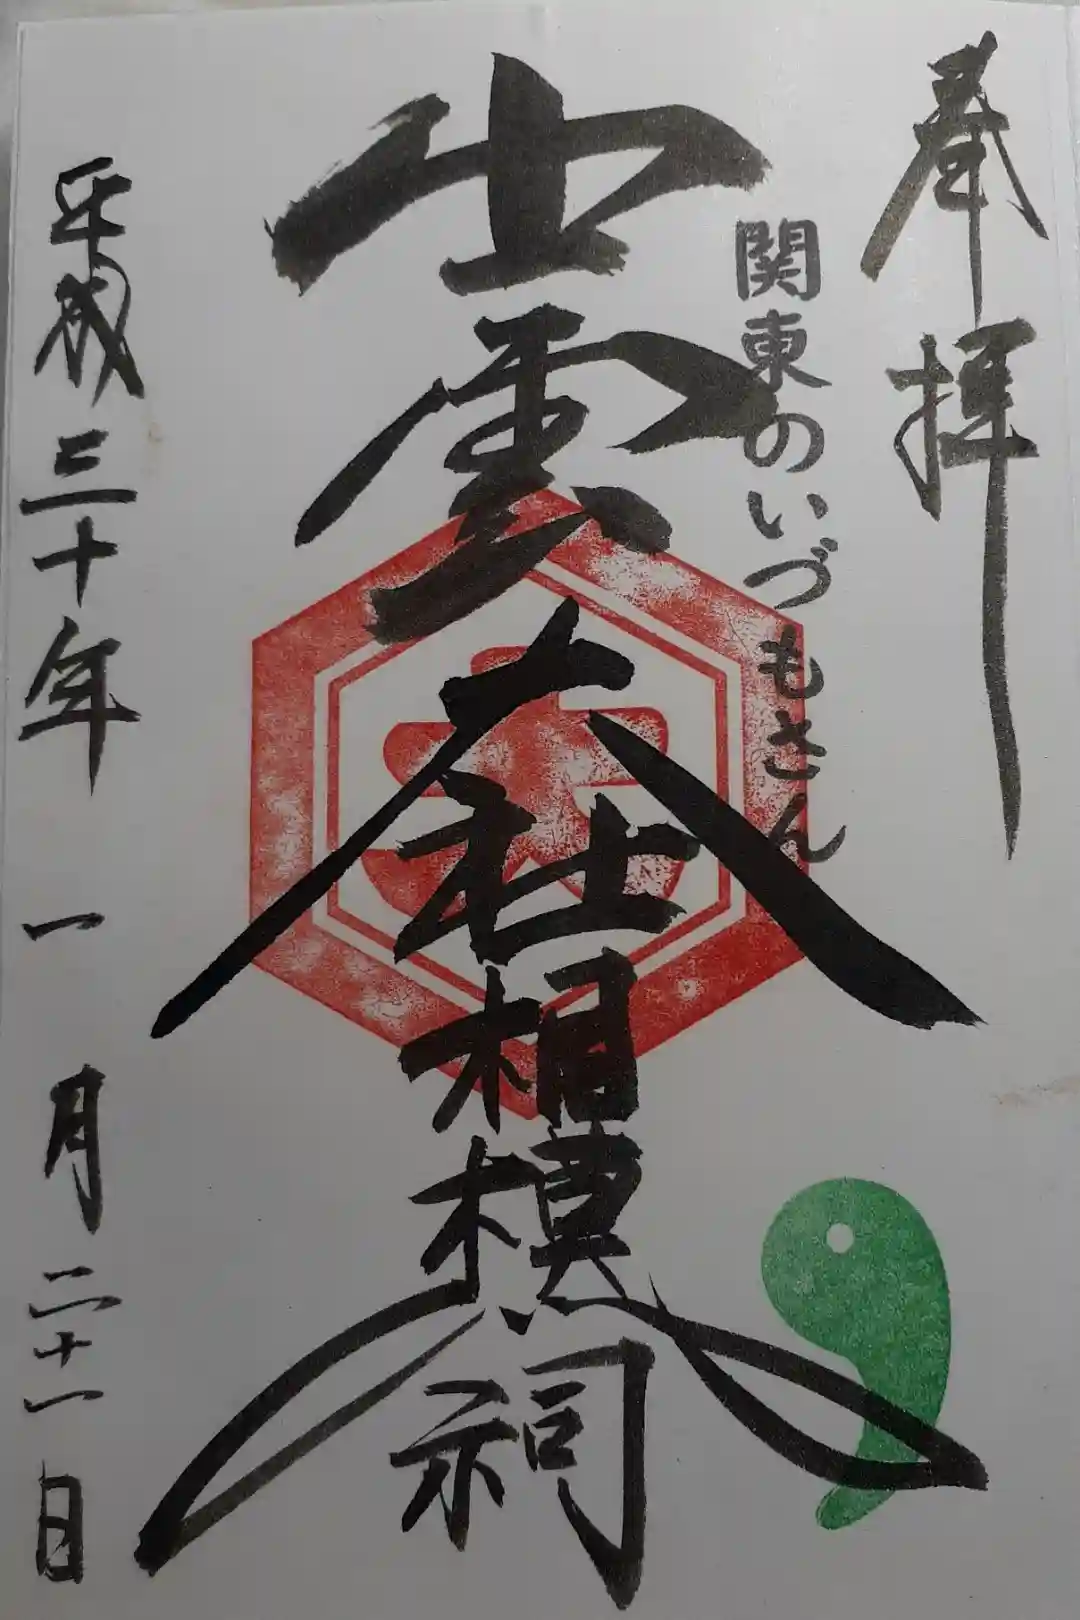 奉拝
関東のいづもさん
出雲大社相模分祠
平成三十年一月二十一日
大